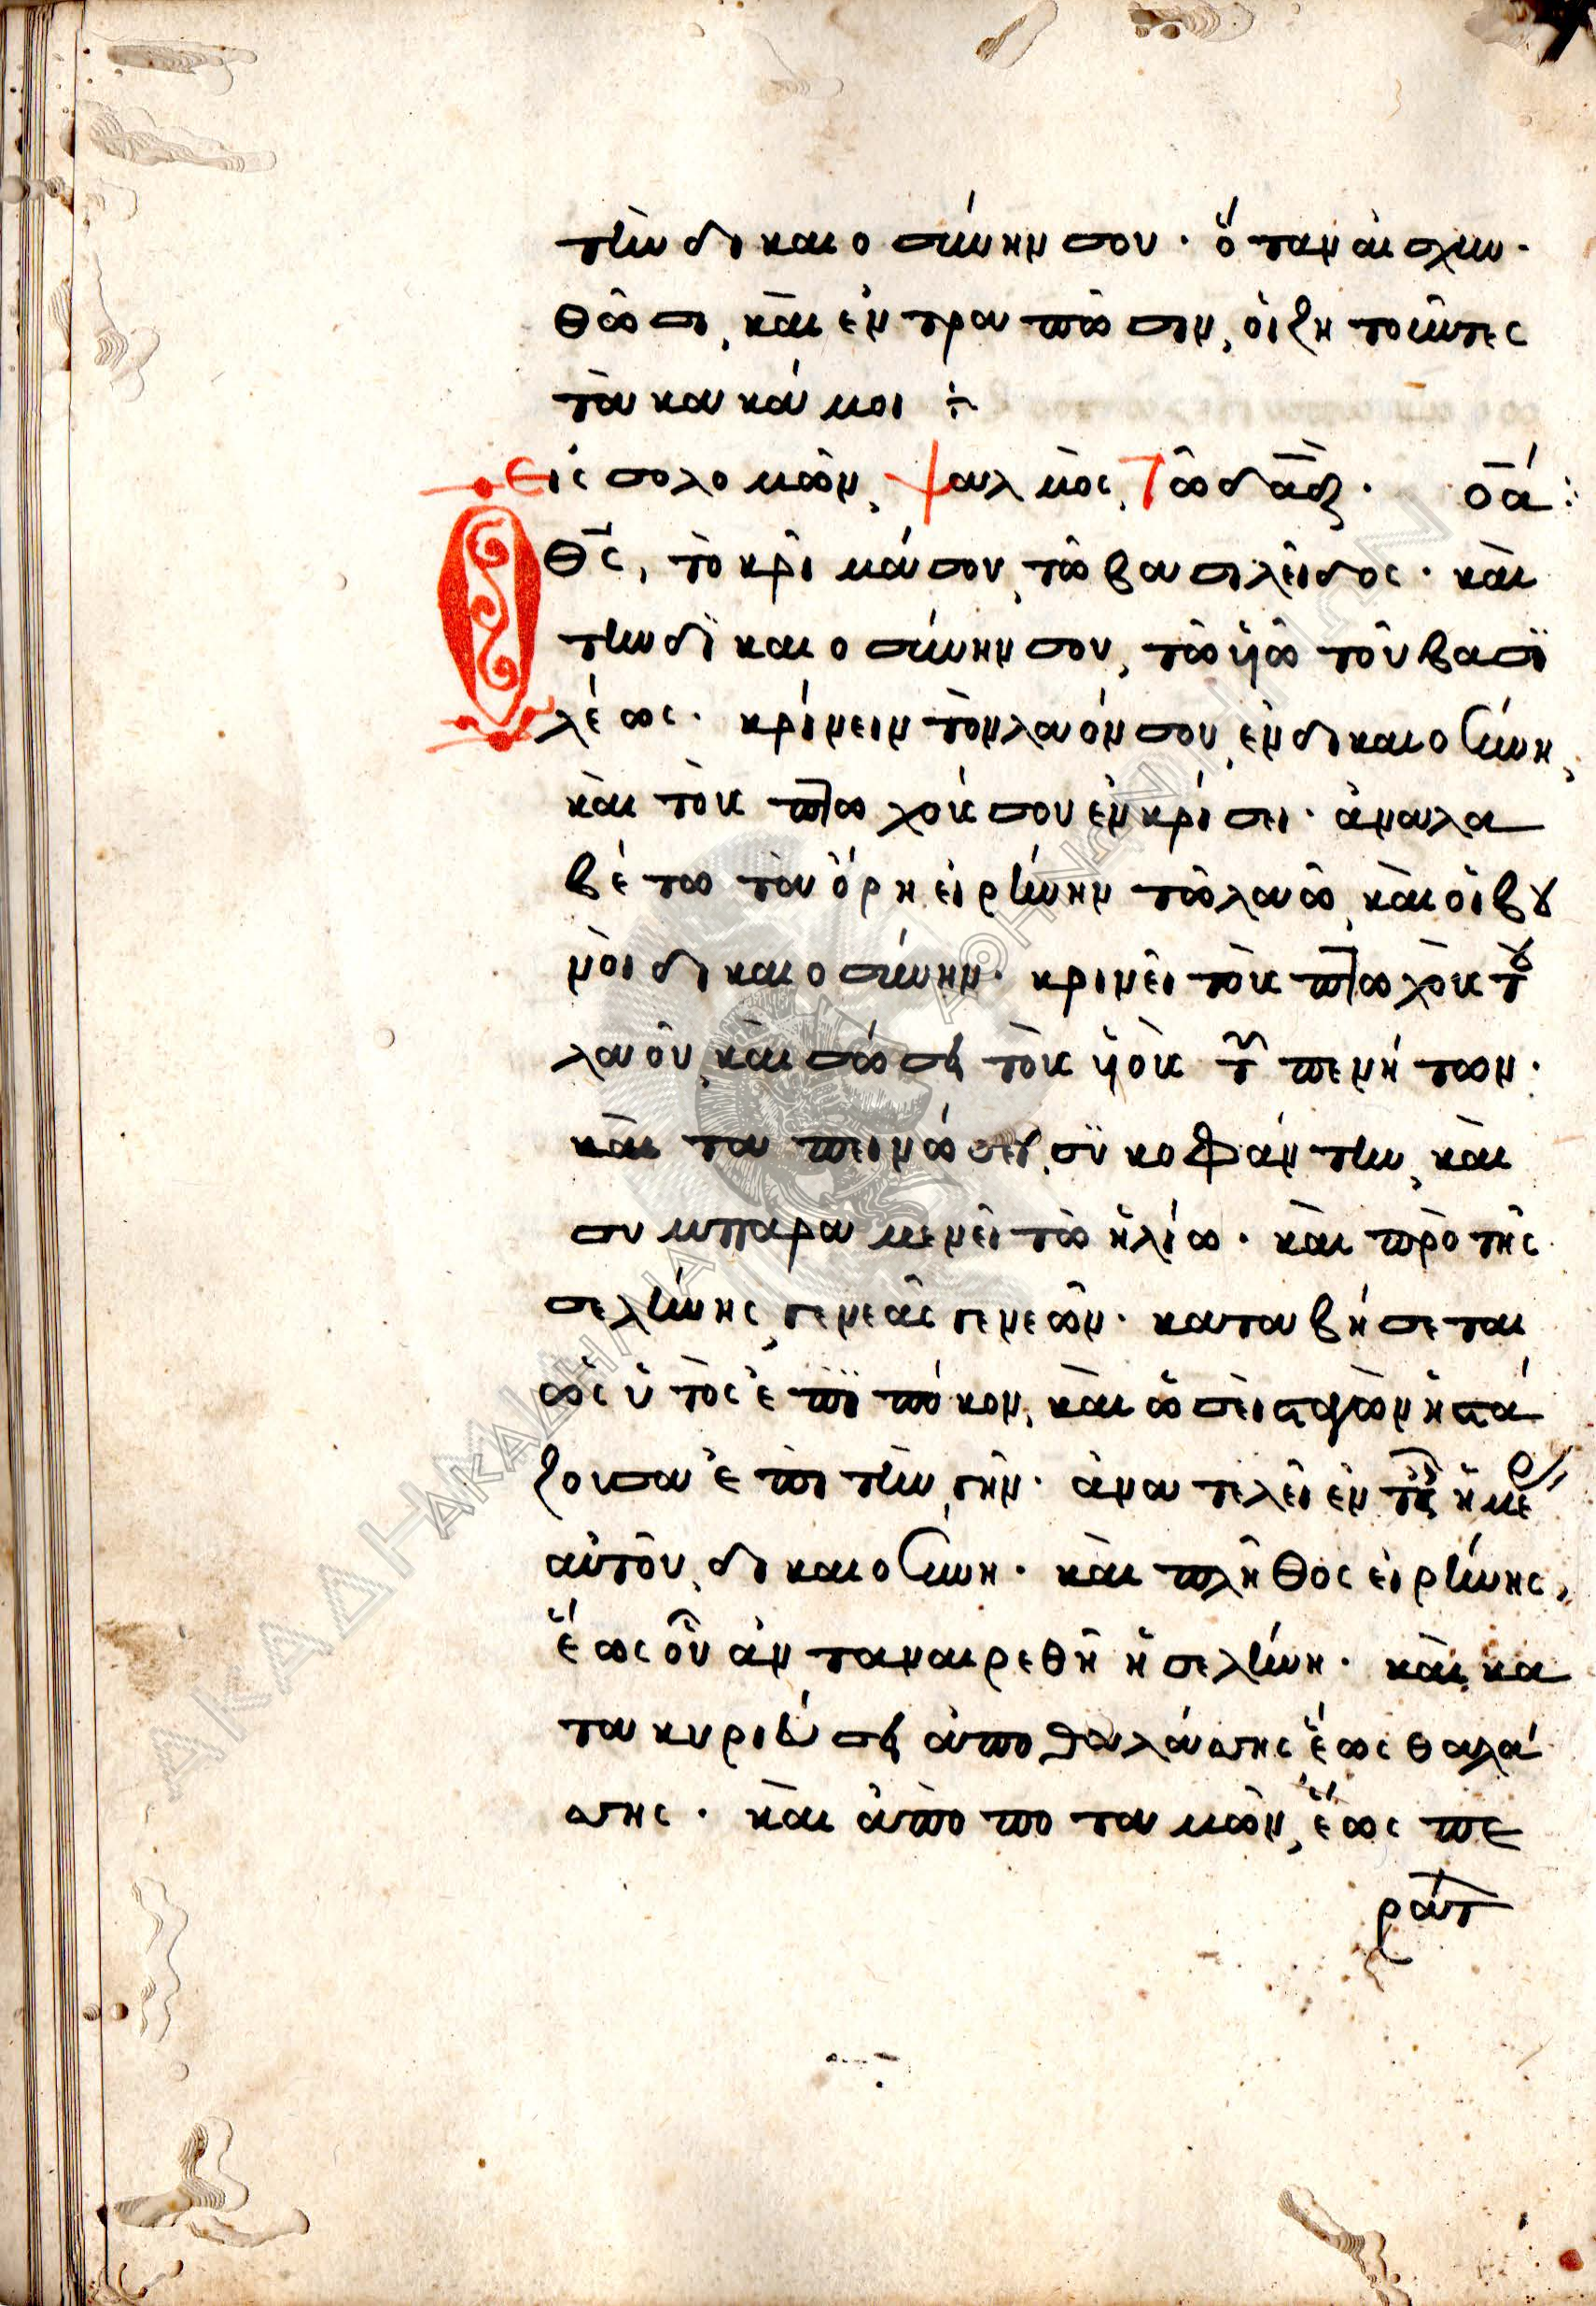 τὴν δικαιοσύνην σου· ὅταν αἰσχυν·
θῶσι, καὶ ἐντραπῶσιν, οἱ ζητοῦντες
τὰ κακά μοι ⁘
Εἰς σολομῶν, ψαλμὸς, Τῶ δᾱδ· ο̄ά:
Ὁ θς̄, τὸ κρῖμά σου, τῶ βασιλεῖ δος· καὶ
τὴν δϊκαιοσύνην σου, τῶ ϋῶ τοῦ βασϊ
λέως· κρίνειν τὸν λαόν σου, ἐν δικαιοσύνη,
καὶ τοὺς πτωχούς σου ἐν κρίσει· ἀναλα
βέτω τὰ ὄρη, εἰρήνην τῶ λαῶ, καὶ οἱ βου
νοὶ δικαιοσύνην· κρινεῖ τοὺς πτωχοὺς τοῦ
λαοῦ, καὶ σώσει τοὺς ϋοὺς τῶν πενήτων·
καὶ ταπεινώσει, σϋκοφάντην, καὶ
συμπαραμενεῖ τῶ ἡλίω· καὶ πρὸ τῆς
σελήνης, γενεὰς γενεῶν· καταβήσεται
ὡς ὑετὸς ἐπὶ πόκον, καὶ ὡσεὶ σταγὼν ἡ στά
ζουσα ἐπὶ τὴν γῆν· ἀνατελεῖ ἐν ταῖς ἡμέρ
αὐτοῦ, δικαιοσύνη· καὶ πλῆθος εἰρήνης,
ἕως οὗ ἀνταναιρεθῆ ἡ σελήνη· καὶ κα
τακυριεύσει ἀπὸ θαλάσσης ἕως θαλά
σσης· καὶ ἀπὸ ποταμῶν, ἕως πε
ράτ
ΑΚΑΔΗΜΙΑ ΑΘΗΝΩΝ